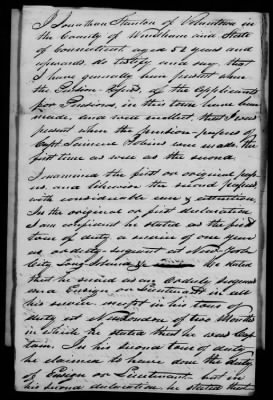 I Jonathan Stanton of Voluntown in
the County of Windham and State
of Connecticut aged 52 years and
upwards do testify and say that
I have generally been present when
the Pension of the Applicants
for Pensions, in this town have been
made, and well recollect, that I was
present when the pension papers of
Capt. Robins were made the
first time as well as the second.
I examined the first or original pap-
ers, and likewise the second papers,
with considerable care & attention,
In the original or first declaration
I am confident he stated as the first
tour of duty a service of one year
as orderly sergeant at New York
City Long Island &c He stated
that he served as an orderly sergeant
and Ensign or Lieutenant in all
his service except in his tour of
duty at New London of two Months
in which he stated that he was Cap-
tain. In his second tour of duty
he claimed to have done the duty
of Ensign or Lieutenant but in
his second declaration he stated that